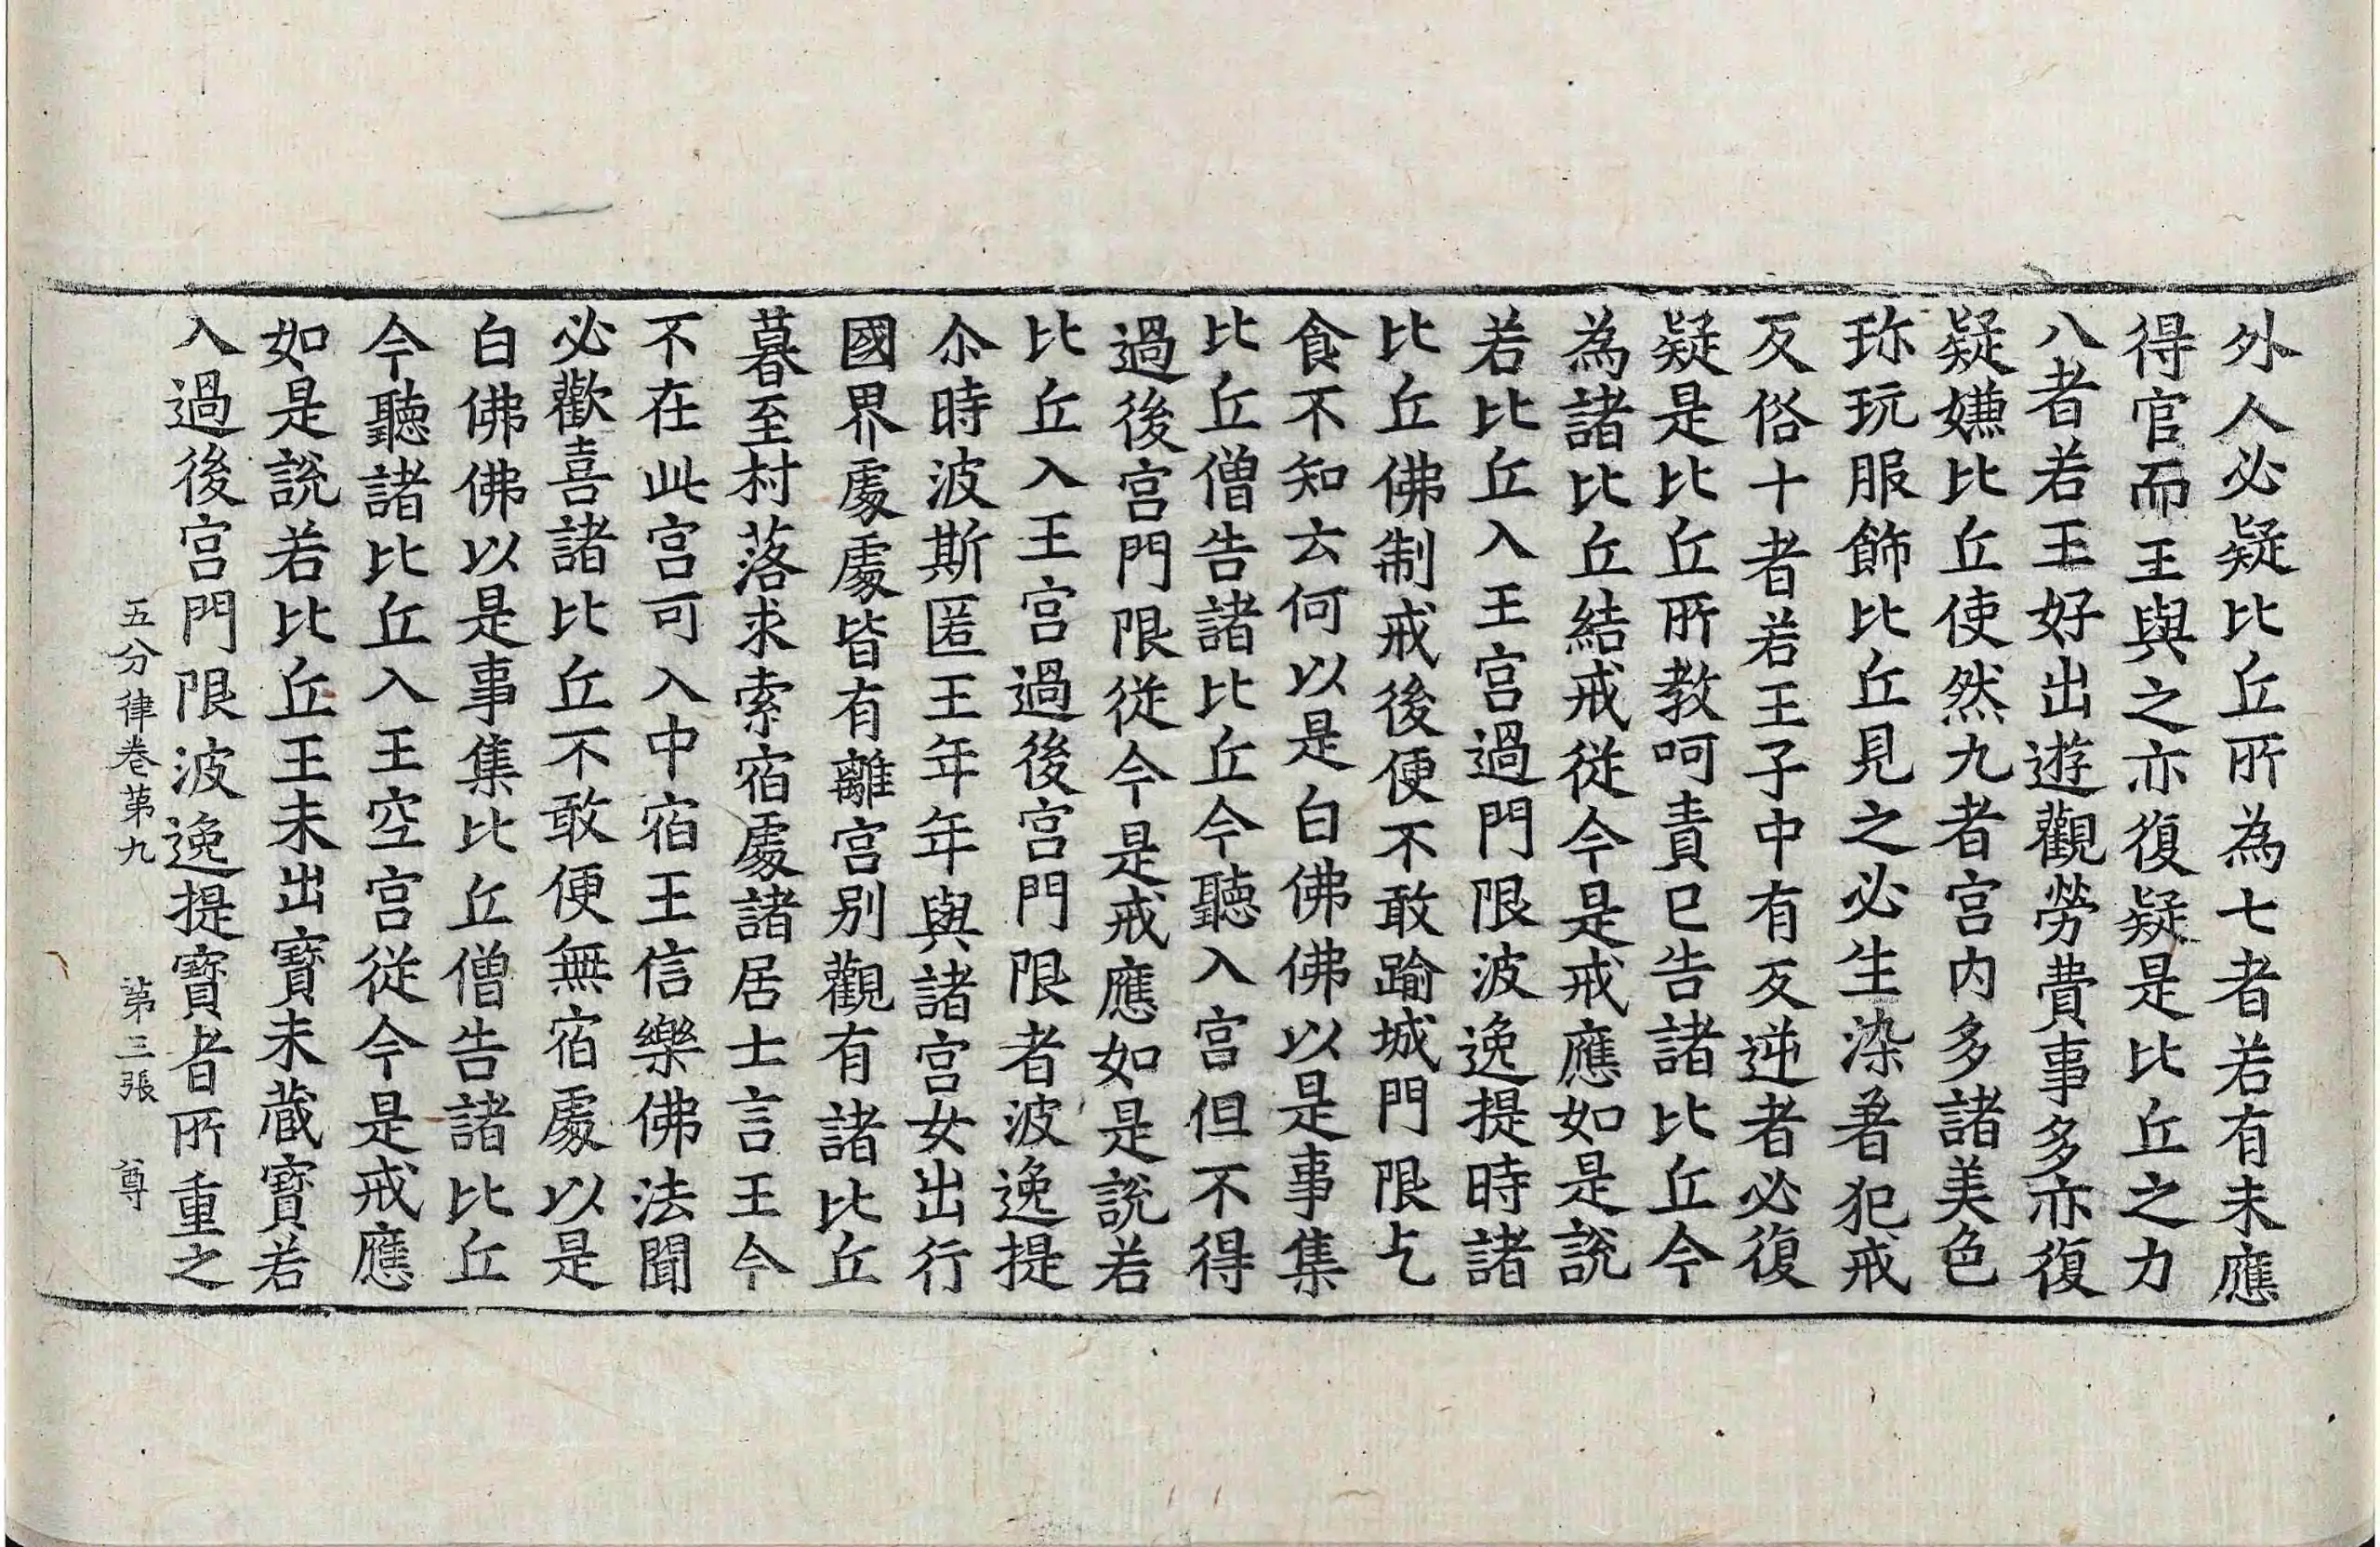 外人必疑比丘所為七者若有未應
得官而王與之亦復疑是比丘之力
八者若王好出遊觀勞費事多亦復
疑嫌比丘使然九者宮内多諸美色
珎玩服飾比丘見之必生染著犯戒
反俗十者若王子中有反逆者必復
疑是比丘所教呵責已告諸比丘今
為諸比丘結戒従今是戒應如是說
若比丘入王宮過門限波逸提時諸
比丘佛制戒後便不敢踰城門限乞
食不知云何以是白佛佛以是事集
比丘僧告諸比丘今聽入宮但不得
過後宮門限従今是戒應如是說若
比丘入王宮過後宮門限者波逸提
尒時波斯匿王年年與諸宮女出行
國界處處皆有離宮别觀有諸比丘
暮至村落求索宿處諸居士言王今
不在此宮可入中宿王信樂佛法聞
必歡喜諸比丘不敢便無宿處以是
白佛佛以是事集比丘僧告諸比丘
今聽諸比丘入王空宮従今是戒應
如是說若比丘王未出寶未蔵寶若
入過後宮門限波逸提寶者所重之
五分律卷苐九 苐三張 尊